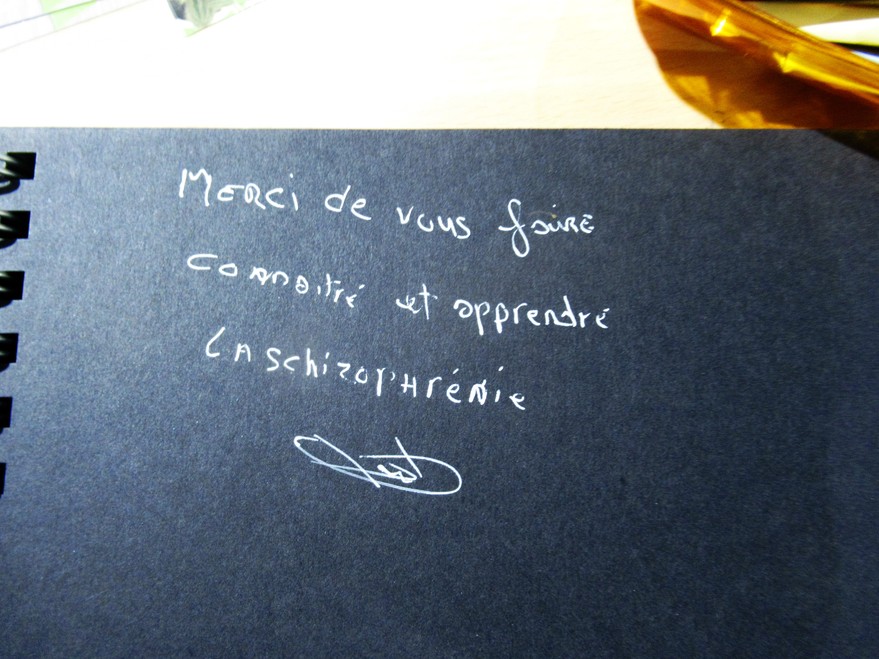 Merci de vous faire
connaitre et apprendre
la schizophrénie